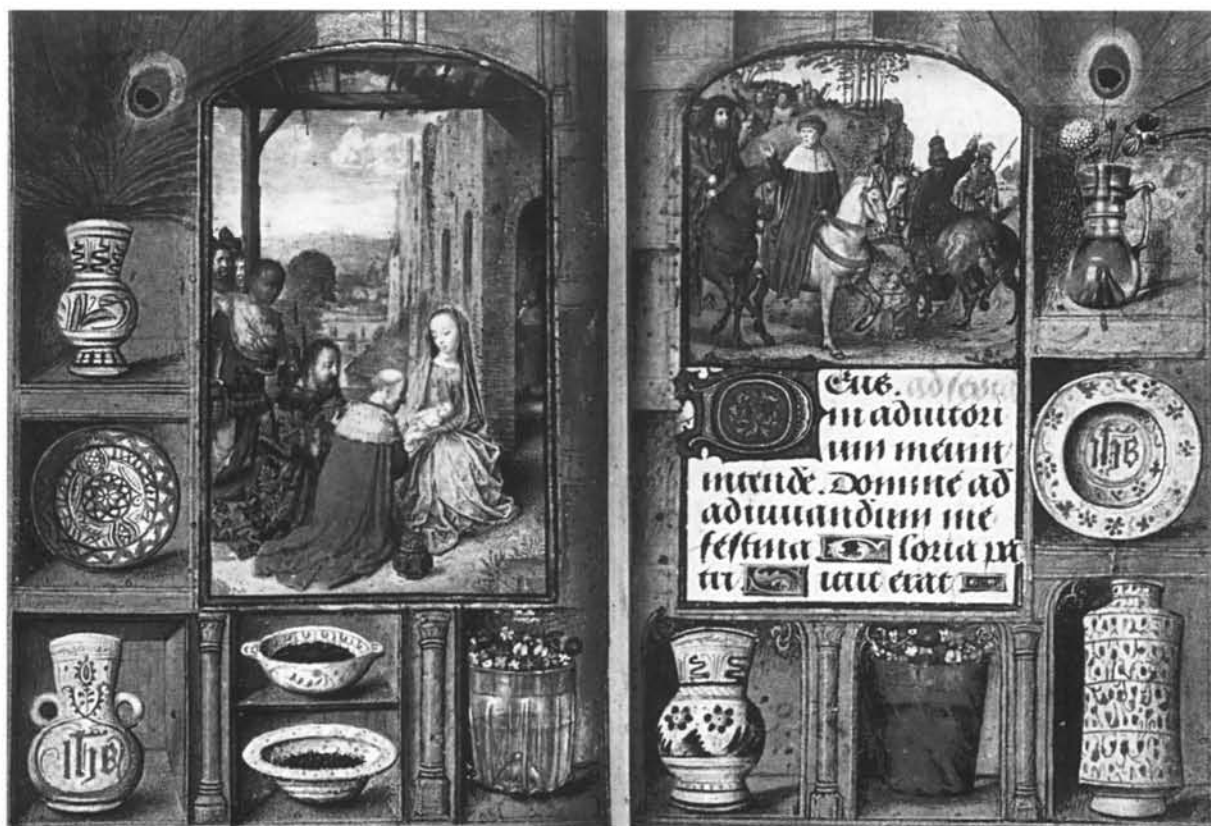 ihs
Deus.
in adiutori
um meum
intende. Domine ad
adiuuandum me
festina Gloria pa
tri Sicut erat
ihs